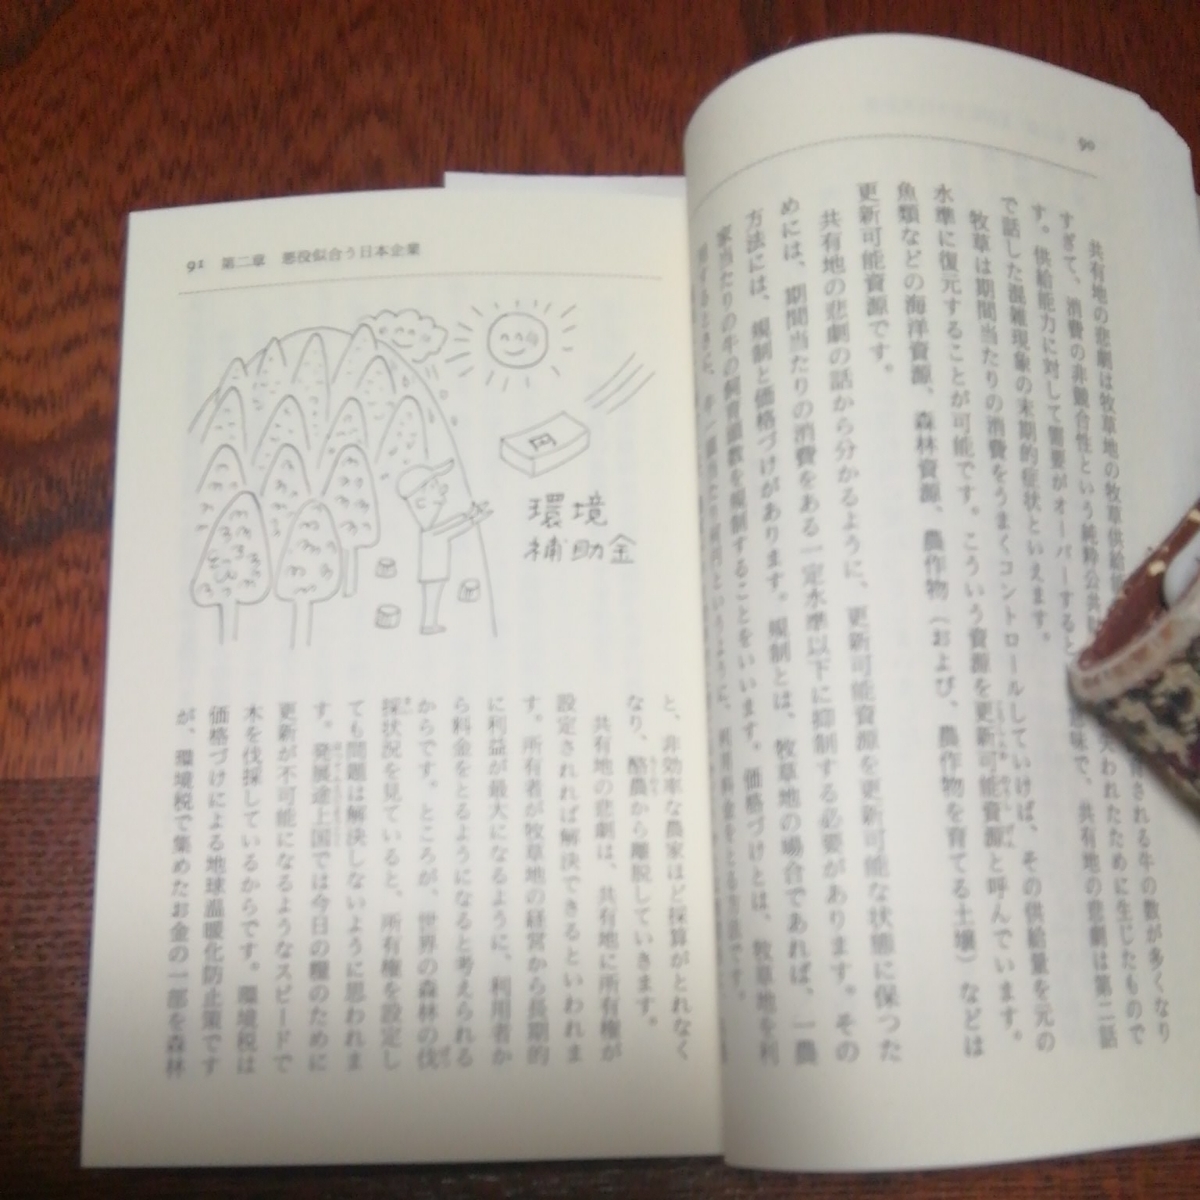 90
共有地の悲劇は牧草地の牧草供給
される牛の数が多くなり
すぎて、消費の非競合性という純粋公共
われたために生じたもので
す。供給能力に対して需要がオーバーすると
味で、共有地の悲劇は第二話
で話した混雑現象の末期的症状といえます。
牧草は期間当たりの消費をうまくコントロールしていけば、その供給量を元の
水準に復元することが可能です。こういう資源を更新可能資源と呼んでいます。
魚類などの海洋資源、森林資源、農作物（および、農作物を育てる土壌）などは
更新可能資源です。
共有地の悲劇の話から分かるように、更新可能資源を更新可能な状態に保つた
めには、期間当たりの消費をある一定水準以下に抑制する必要があります。その
方法には、規制と価格づけがあります。規制とは、牧草地の場合であれば、一農
家当たりの牛の飼育頭数を規制することをいいます。価格づけとは、牧草地を利
用するときに、牛一頭当たり何円というように、利用料金をとる方法です。
91 第二章 悪役似合う日本企業
円
環境
補助金
と、非効率な農家ほど採算がとれなく
なり、酪農から離脱していきます。
共有地の悲劇は、共有地に所有権が
設定されれば解決できるといわれま
す。所有者が牧草地の経営から長期的
に利益が最大になるように、利用者か
ら料金をとるようになると考えられる
からです。ところが、世界の森林の伐
採状況を見ていると、所有権を設定し
ても問題は解決しないように思われま
す。発展途上国では今日の糧のために
更新が不可能になるようなスピードで
木を伐採しているからです。環境税は
価格づけによる地球温暖化防止策です
が、環境税で集めたお金の一部を森林